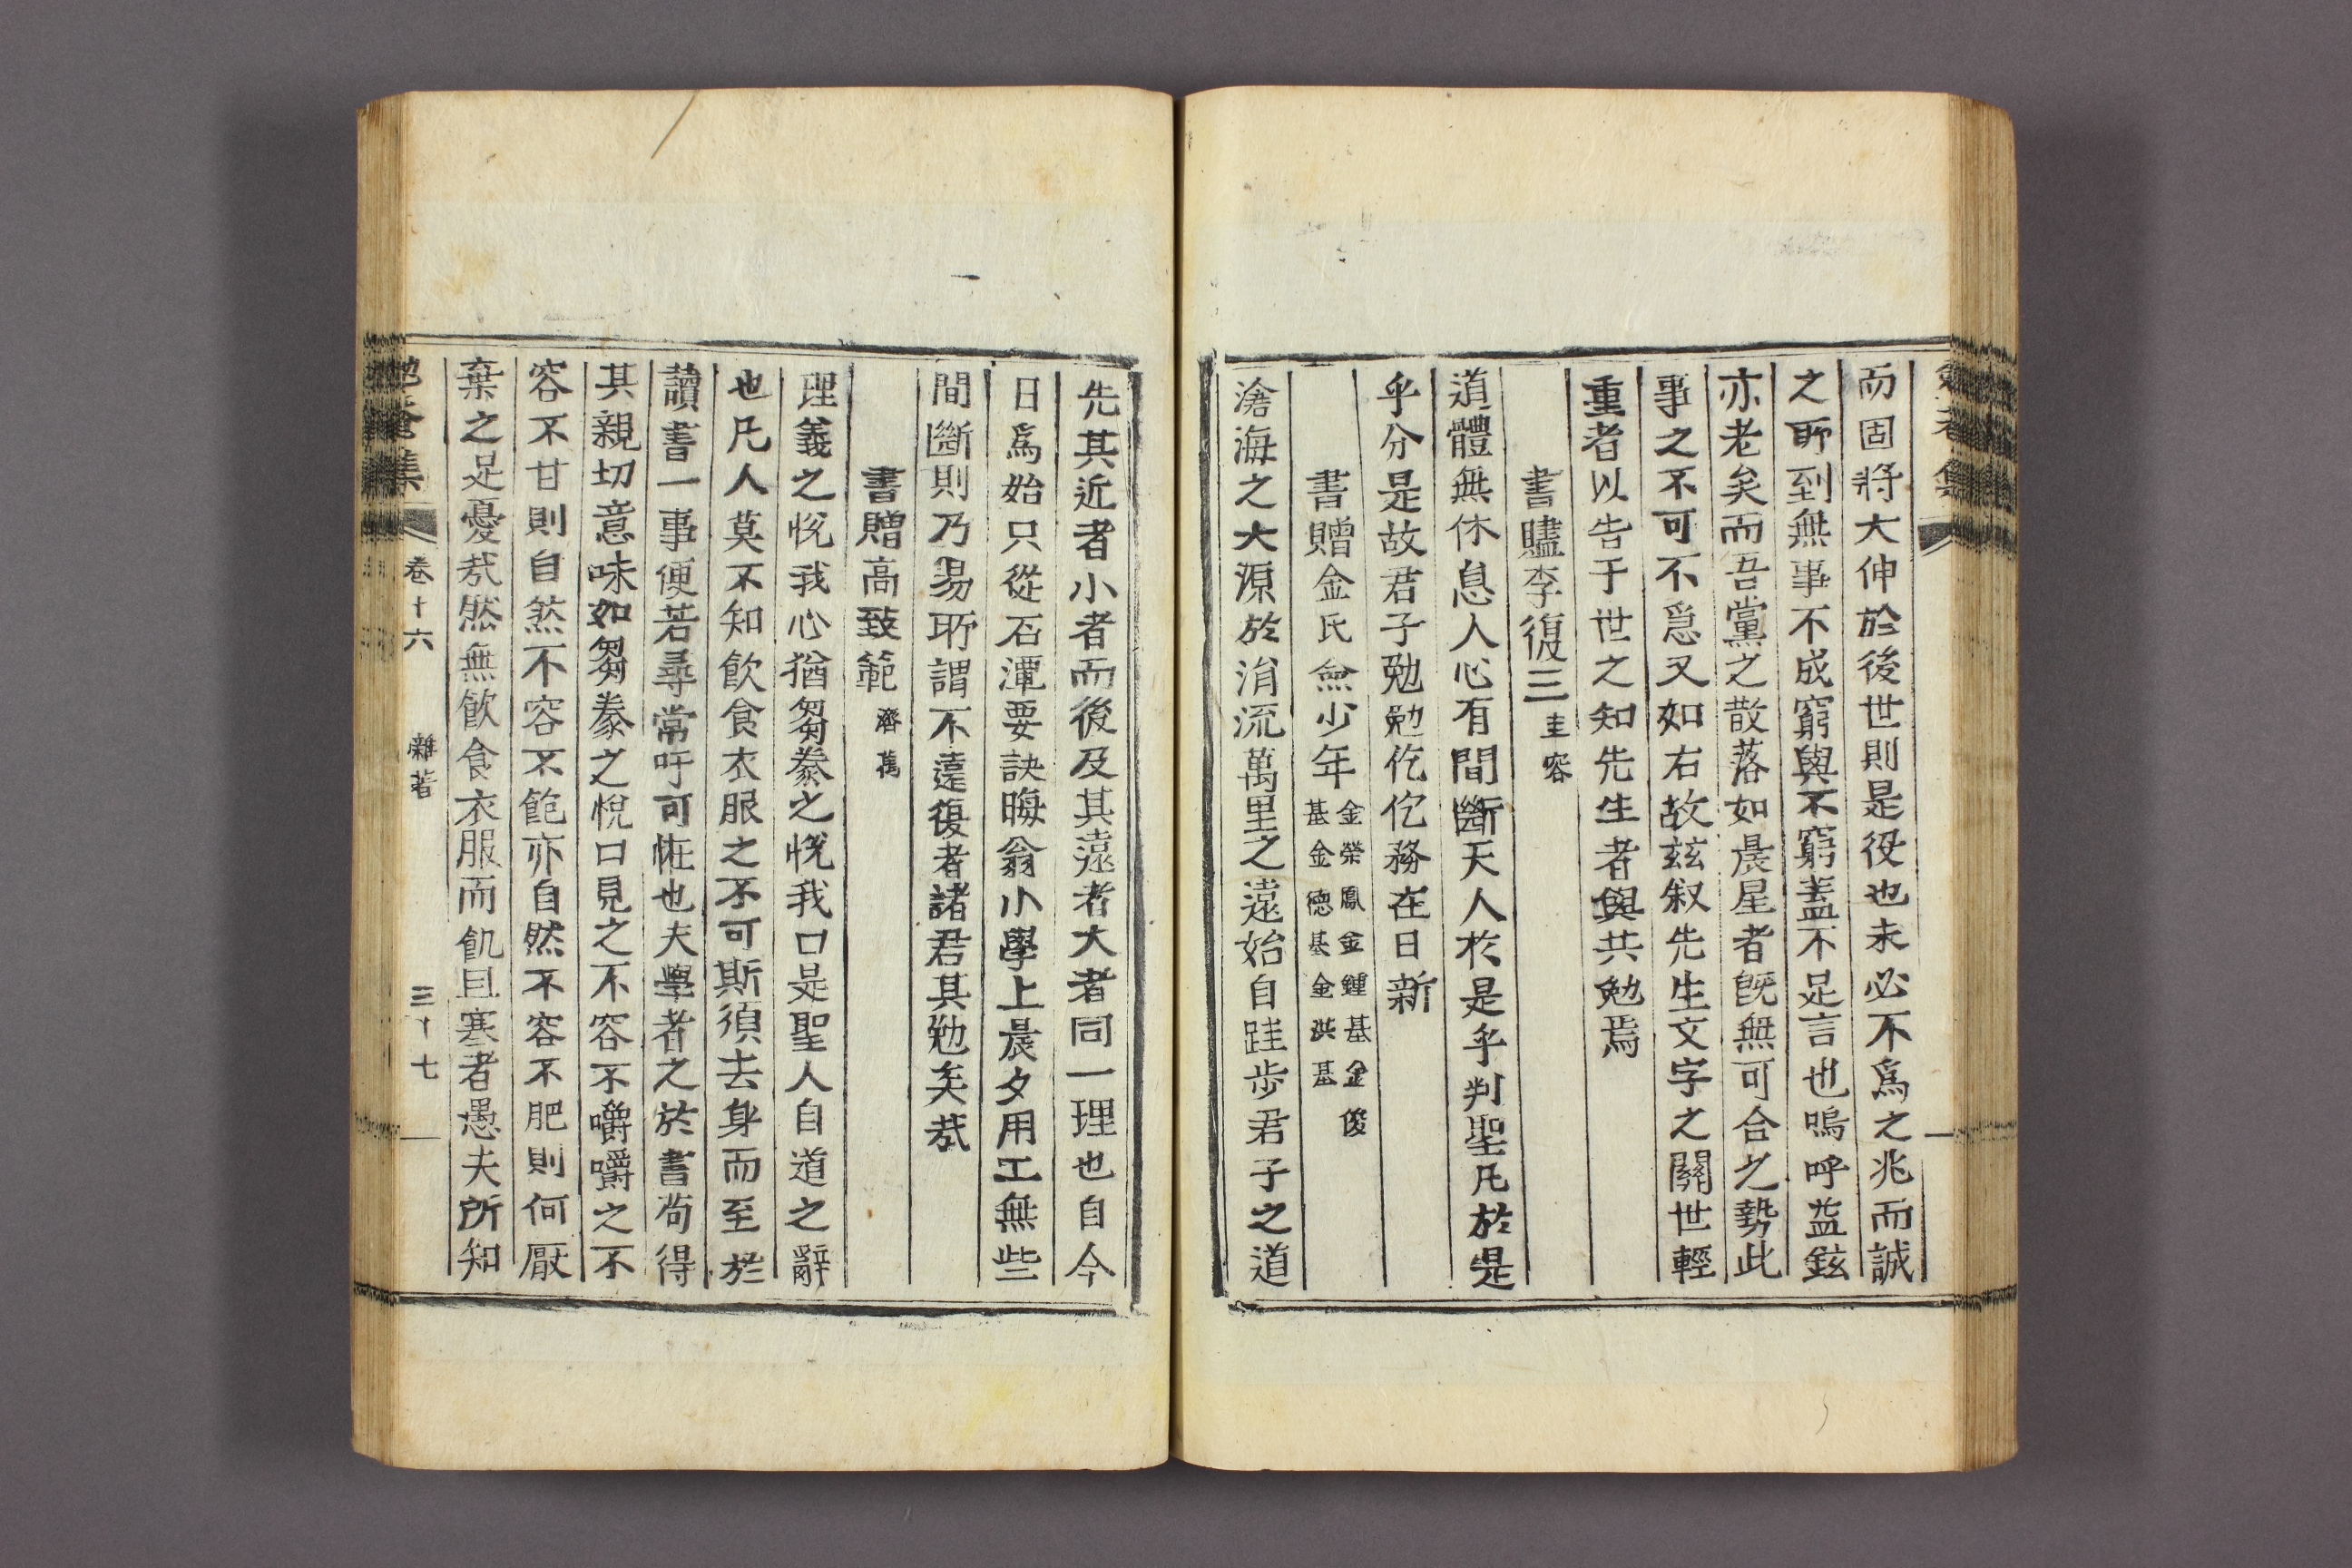 而固將大伸於後世則是役也未必不爲之兆而誠
之所到無事不成窮與不窮盖不足言也嗚呼益鉉
亦老矣而吾黨之散落如晨星者旣無可合之勢此
事之不可不急又如右故玆叙先生文字之關世輕
重者以告于世之知先生者與共勉焉
書贐李復三 圭容
道體無休息人心有間斷天人於是乎判聖凡於是
乎分是故君子勉勉仡仡務在日新
書贈金氏僉少年 金榮鳳金鍾基金俊
基金德基金洪基
滄海之大源於涓流萬里之遠始自跬步君子之道
先其近者小者而後及其遠者大者同一理也自今
日爲始只從石潭要訣晦翁小學上晨夕用工無些
間斷則乃易所謂不遠復者諸君其勉矣哉
書贈高致範 濟萬
理義之悅我心猶芻豢之悅我口是聖人自道之辭
也凡人莫不知飮食衣服之不可斯須去身而至於
讀書一事便若尋常吁可恠也夫學者之於書苟得
其親切意味如芻豢之悅口見之不容不嚼嚼之不
容不甘則自然不容不飽亦自然不容不肥則何厭
棄之足憂哉然無飮食衣服而飢且寒者愚夫所知
勉菴集 卷十六 雜著 三十七